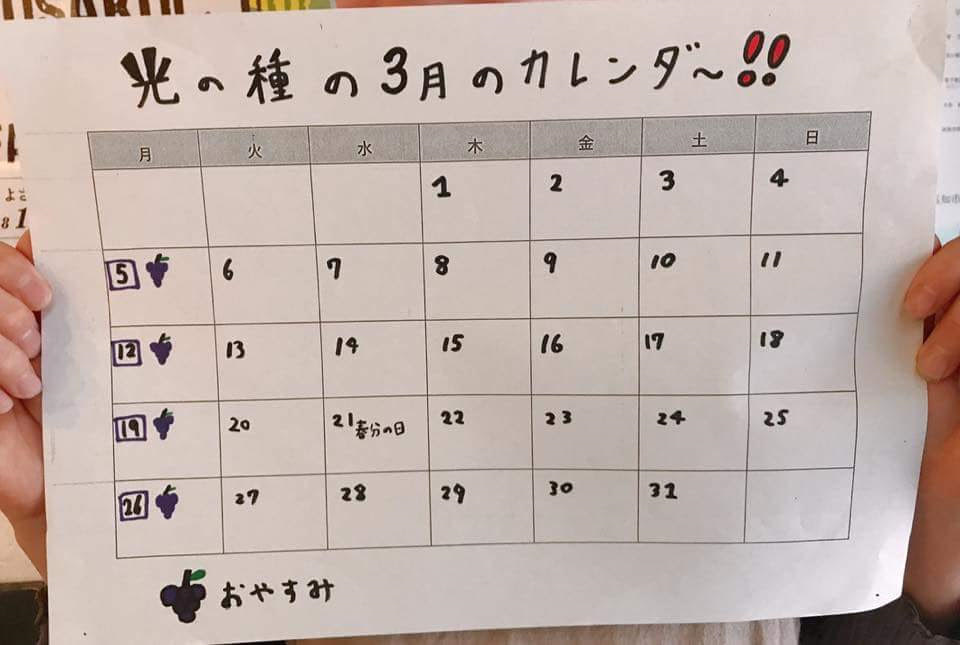 光の種の3月のカレンダ〜!!
月 火 水 木 金 土 日
1 2 3 4
5 6 7 8 9 10 11
12 13 14 15 16 17 18
19 20 21春分の日 22 23 24 25
26 27 28 29 30 31
おやすみ
よさ
81